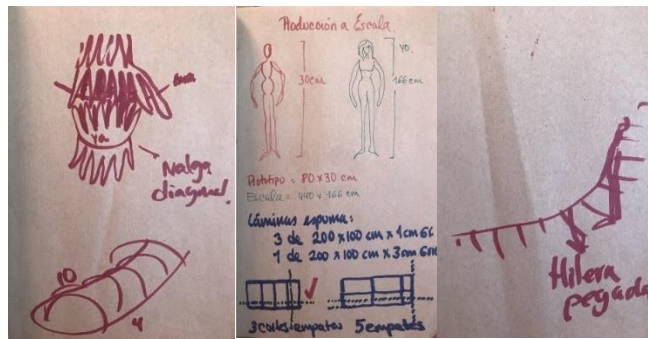 ya
Nalga
diagonal
10
4
Producción a Escala
YO.
30cm
166cm
Prototipo = 80 x 30 cm
Escala = 440 x 166 cm
Láminas espuma:
3 de 200 x 100 cm x 1 cm
1 de 200 x 100 cm x 3 cm
3 cortes empates
5 empates
Hilera
pegada